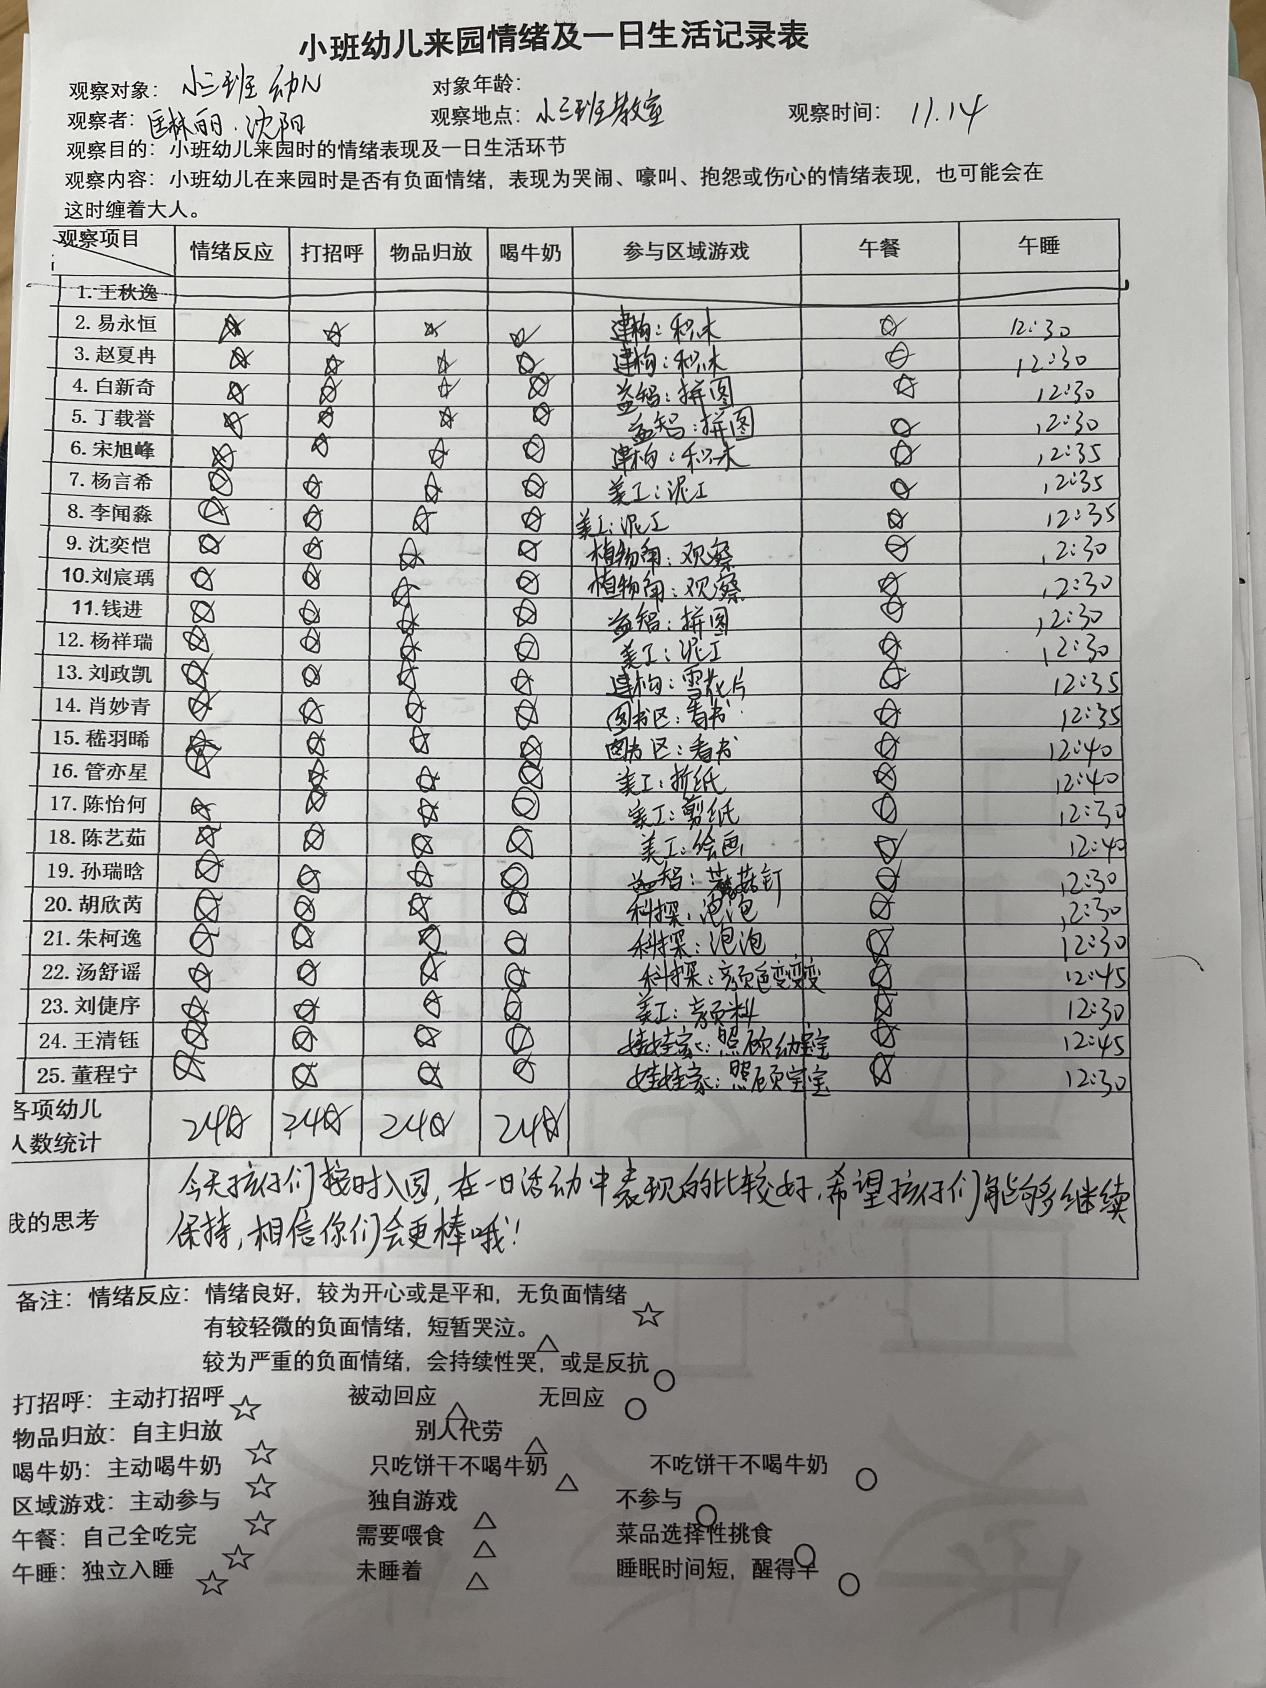 小班幼儿来园情绪及一日生活记录表
观察对象：小三班 幼儿 对象年龄：
观察者：匡林丽、沈阳 观察地点：小三班教室 观察时间：11.14
观察目的：小班幼儿来园时的情绪表现及一日生活环节
观察内容：小班幼儿在来园时是否有负面情绪，表现为哭闹、嚎叫、抱怨或伤心的情绪表现，也可能会在
这时缠着大人。
观察项目 情绪反应 打招呼 物品归放 喝牛奶 参与区域游戏 午餐 午睡
1. 王秋逸
2. 易永恒 ☆ ☆ ☆ ☆ 建构：积木 ☆ 12:30
3. 赵夏冉 ☆ ☆ ☆ ☆ 建构：积木 ☆ 12:30
4. 白新奇 ☆ ☆ ☆ ☆ 益智：拼图 ☆ 12:30
5. 丁载誉 ☆ ☆ ☆ ☆ 益智：拼图 ☆ 12:30
6. 宋旭峰 ☆ ☆ ☆ ☆ 建构：积木 ☆ 12:35
7. 杨言希 ☆ ☆ ☆ ☆ 美工：泥工 ☆ 12:35
8. 李闻淼 ☆ ☆ ☆ ☆ 美工：泥工 ☆ 12:35
9. 沈奕恺 ☆ ☆ ☆ ☆ 植物角：观察 ☆ 12:30
10.刘宸瑀 ☆ ☆ ☆ ☆ 植物角：观察 ☆ 12:30
11.钱进 ☆ ☆ ☆ ☆ 益智：拼图 ☆ 12:30
12. 杨祥瑞 ☆ ☆ ☆ ☆ 美工：泥工 ☆ 12:30
13. 刘政凯 ☆ ☆ ☆ ☆ 建构：雪花片 ☆ 12:35
14. 肖妙青 ☆ ☆ ☆ ☆ 图书区：看书 ☆ 12:35
15. 嵇羽晞 ☆ ☆ ☆ ☆ 图书区：看书 ☆ 12:40
16. 管亦星 ☆ ☆ ☆ ☆ 美工：折纸 ☆ 12:40
17. 陈怡何 ☆ ☆ ☆ ☆ 美工：剪纸 ☆ 12:30
18. 陈艺茹 ☆ ☆ ☆ ☆ 美工：绘画 ☆ 12:40
19. 孙瑞晗 ☆ ☆ ☆ ☆ 益智：蘑菇钉 ☆ 12:30
20. 胡欣芮 ☆ ☆ ☆ ☆ 科探：泡泡 ☆ 12:30
21. 朱柯逸 ☆ ☆ ☆ ☆ 科探：泡泡 ☆ 12:30
22. 汤舒谣 ☆ ☆ ☆ ☆ 科探：颜色变变变 ☆ 12:45
23. 刘倢序 ☆ ☆ ☆ ☆ 美工：颜料 ☆ 12:30
24. 王清钰 ☆ ☆ ☆ ☆ 娃娃家：照顾幼宝宝 ☆ 12:45
25. 董程宁 ☆ ☆ ☆ ☆ 娃娃家：照顾宝宝 ☆ 12:30
各项幼儿
人数统计 24☆ 24☆ 24☆ 24☆
我的思考
今天孩仔们按时入园，在一日活动中表现的比较好，希望孩仔们能够继续
保持，相信你们会更棒哦！
备注：情绪反应：情绪良好，较为开心或是平和，无负面情绪 ☆
有较轻微的负面情绪，短暂哭泣。 △
较为严重的负面情绪，会持续性哭，或是反抗 ○
打招呼：主动打招呼 ☆ 被动回应 △ 无回应 ○
物品归放：自主归放 ☆ 别人代劳 △
喝牛奶：主动喝牛奶 ☆ 只吃饼干不喝牛奶 △ 不吃饼干不喝牛奶 ○
区域游戏：主动参与 ☆ 独自游戏 △ 不参与 ○
午餐：自己全吃完 ☆ 需要喂食 △ 菜品选择性挑食 ○
午睡：独立入睡 ☆ 未睡着 △ 睡眠时间短，醒得早 ○